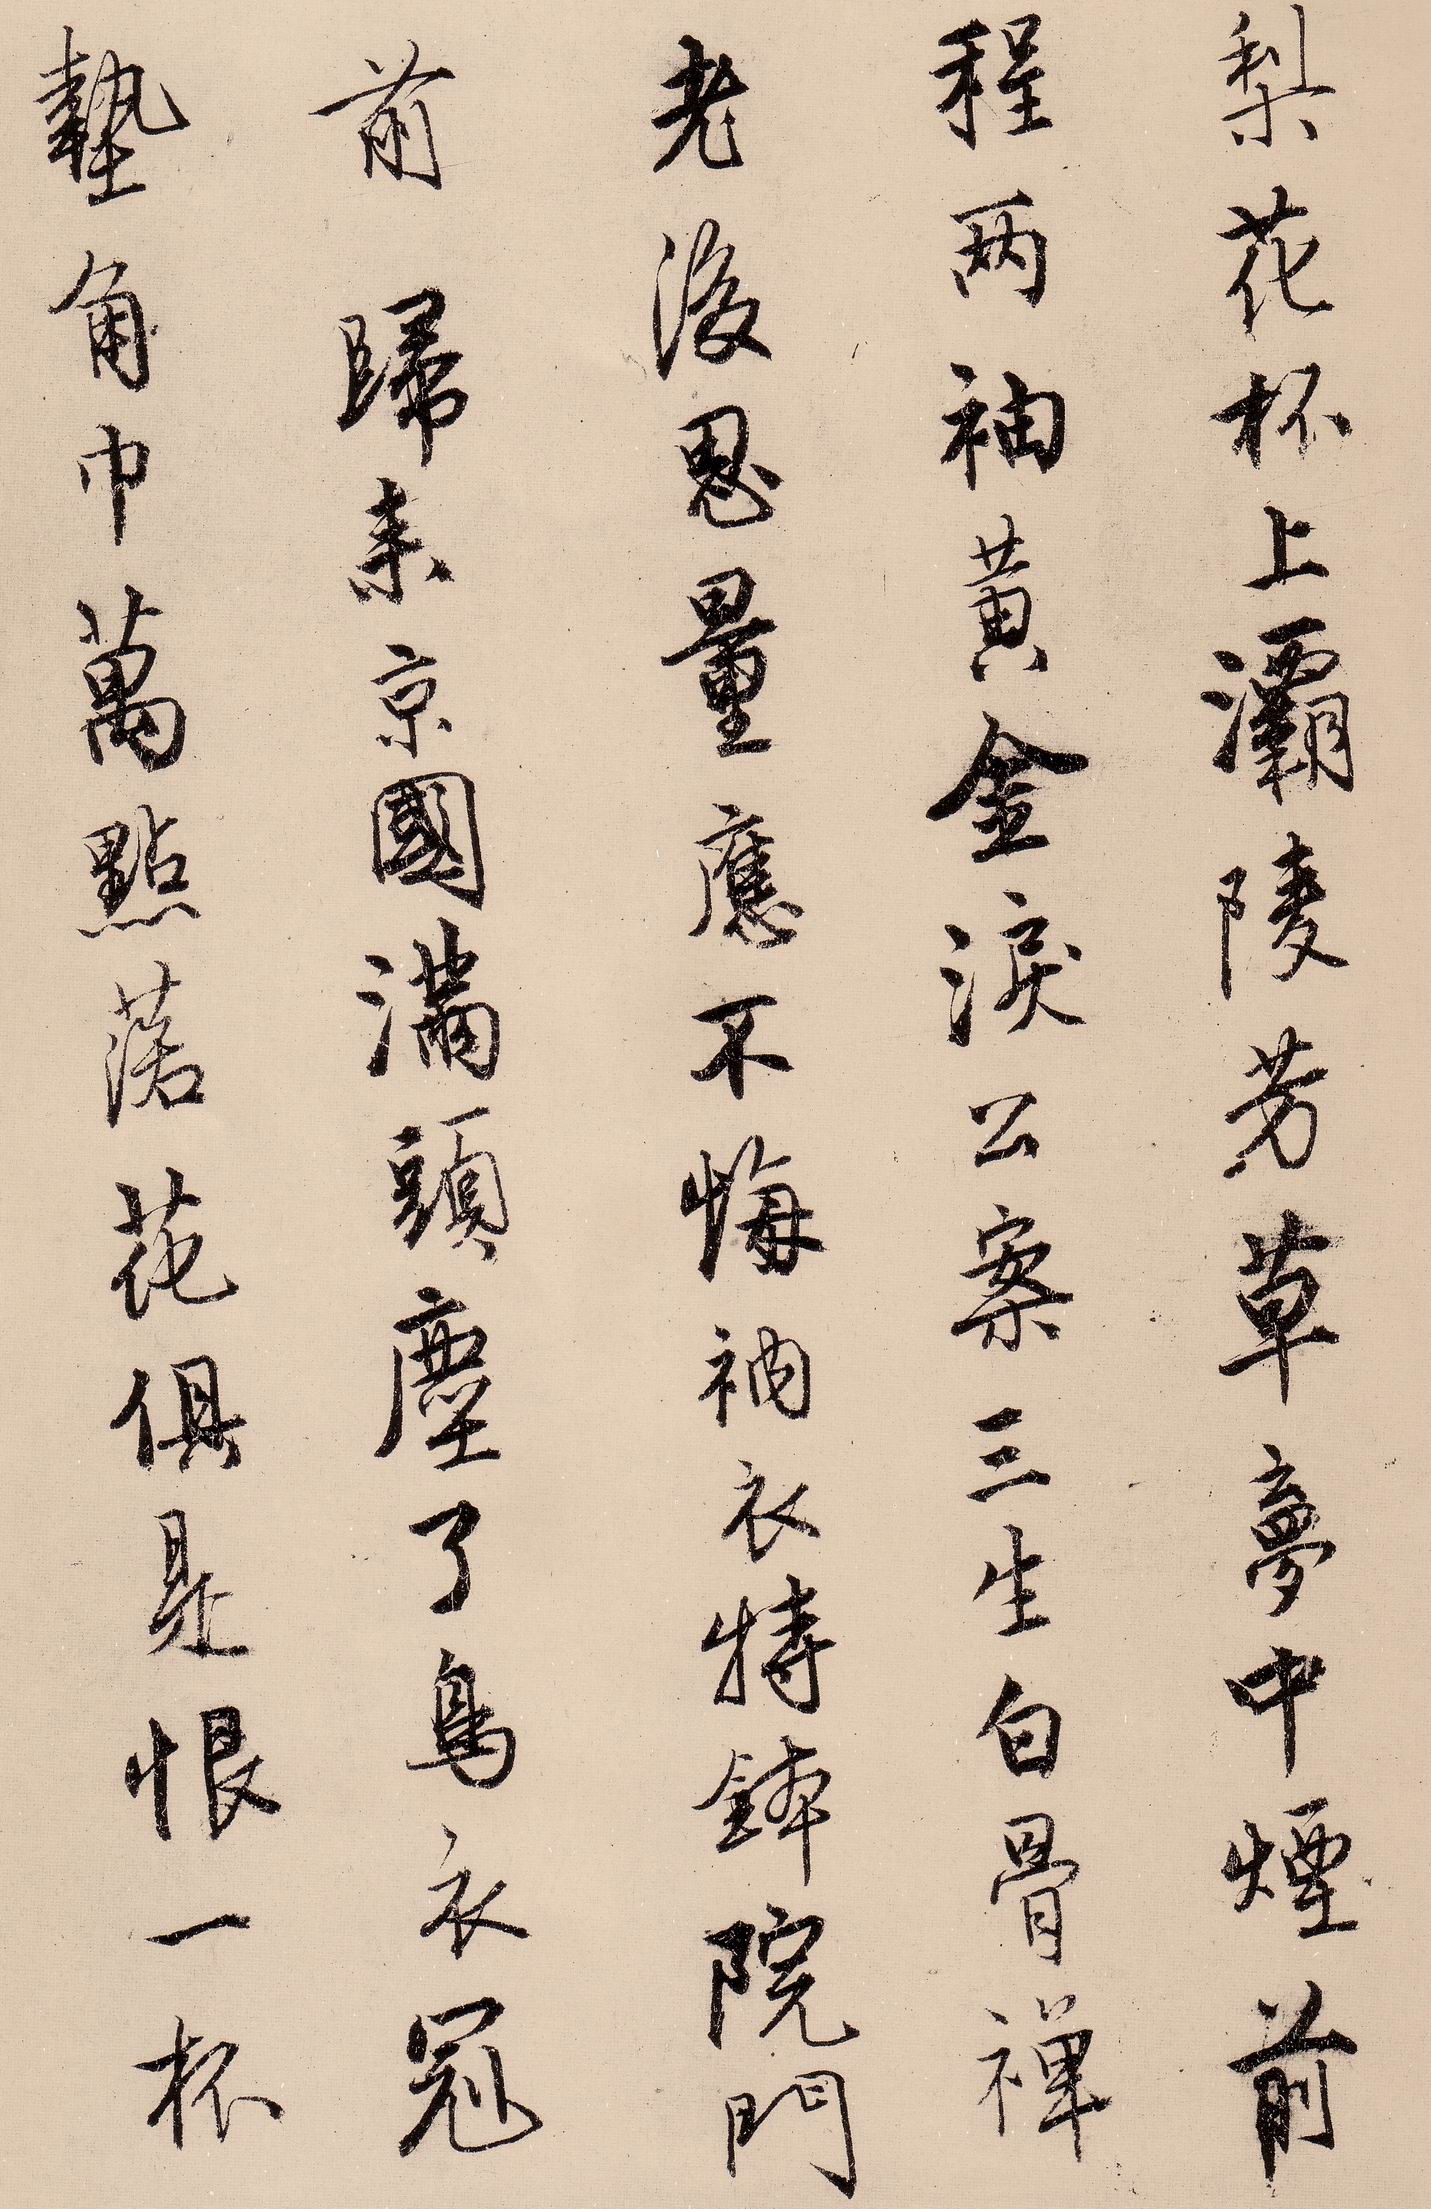 梨花杯上灞陵芳草夢中煙前
程兩袖黃金淚公案三生白骨禪
老後思量應不悔衲衣持鉢院門
前　歸來京國滿頭塵了烏衣冠
墊角巾萬點落花俱是恨一杯